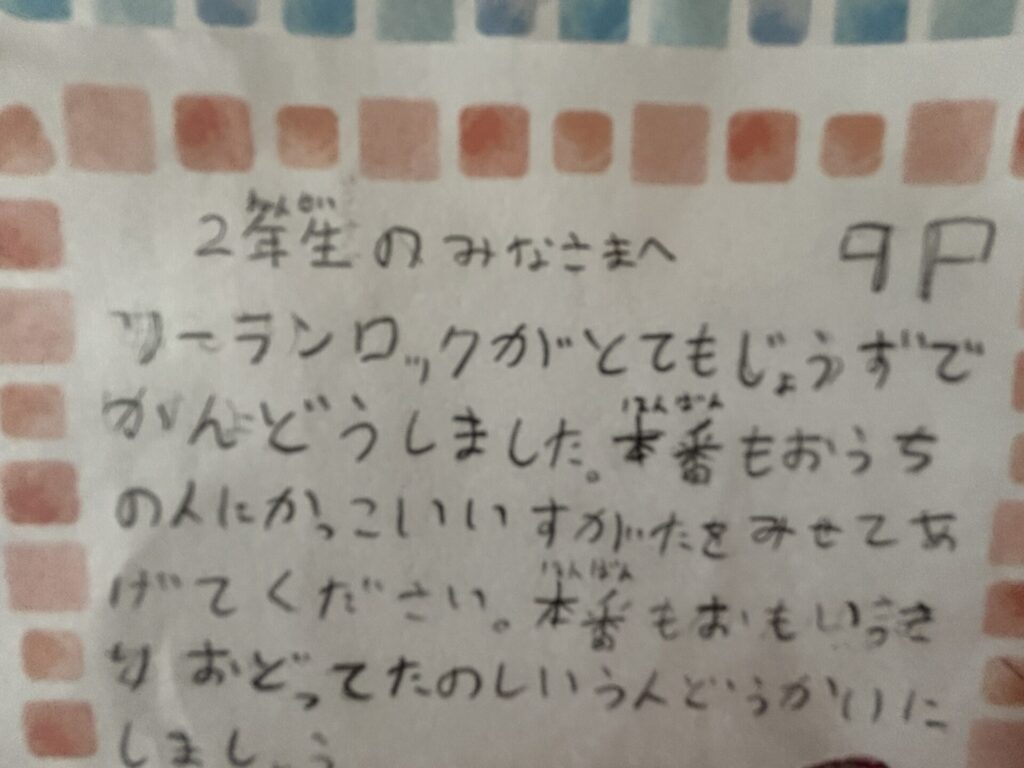 ねんせい
2年生のみなさまへ 9P
ソーランロックがとてもじょうずで
かんどうしました。本番もおうち
ほんばん
の人にかっこいいすがたをみせてあ
げてください。本番もおもいっき
ほんばん
りおどってたのしいうんどうかいに
しましょう